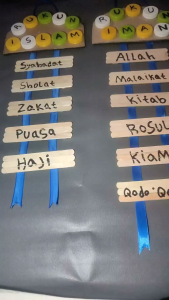 RUKUN
ISLAM
Syahadat
Sholat
Zakat
Puasa
Haji
RUKUN
IMAN
Allah
Malaikat
Kitab
ROSUL
KIAM
Qodo'Qo